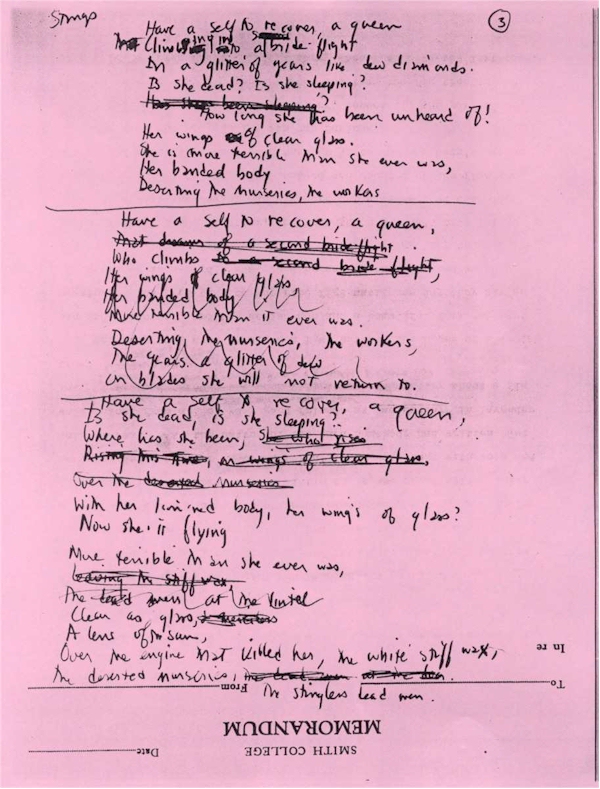 Stings
3
Have a self to recover, a queen
Climbing into a bride flight
In a glitter of years like dew diamonds.
Is she dead? Is she sleeping?
Has she been sleeping?
How long she has been unheard of!
Her wings of clear glass.
She is more terrible than she ever was,
Her banded body
Deserting the nurseries, the workers
Have a self to recover, a queen,
That dreams of a second bride-flight
Who climbs to a second bride flight,
Her wings of clear glass
Her banded body
More terrible than it ever was.
Deserting the nurseries, the workers,
The years a glitter of dew
On blades she will not return to.
Have a self to recover, a queen,
Is she dead, is she sleeping?
Where has she been, she who rises
Rising this time, on wings of clear glass,
Over the deserted nurseries
With her lionred body, her wings of glass?
Now she is flying
More terrible than she ever was,
Leaving the stiff wax,
The dead men at the lintel
Clear as glass,
A lens of the sun,
Over the engine that killed her, the white stiff wax,
The deserted nurseries, the dead men at the door
The stingless dead men.
In re
To
From
MEMORANDUM
SMITH COLLEGE
Date